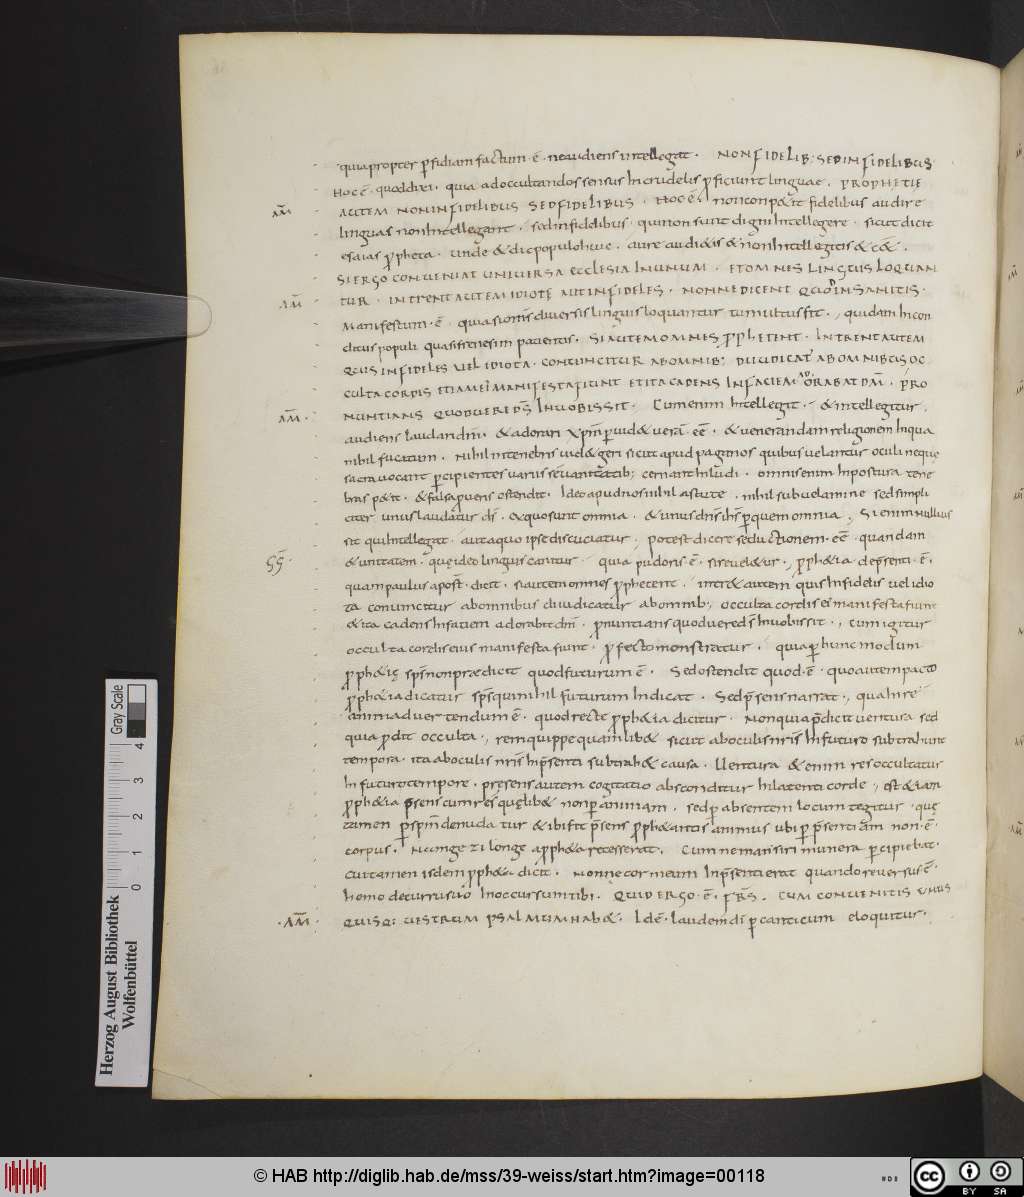 quia propter ꝑfidiam factum · ē · ne audiens intellegat · NON FIDELIB; SED INFIDELIBUS
HOC Ē · quod dixi · quia ad occultandos sensus incrudelis ꝓficiunt linguae · PROPHETIE
AM̄ AUTEM NON INFIDELIBUS SED FIDELIBUS · HOC Ē · non conpetit fidelibus audire
linguas non intellegant · sed infidelibus · qui non sunt digni intellegere · sicut dicit
esaias ꝓpheta · unde & dic populo huic · aure audi&is & non intellegitis & c&
SI ERGO CONVENIAT UNIVERSA ECCLESIA IN UNUM · ET OMNES LINGUIS LOQUAN
AM̄ TUR · INTRENT AUTEM IDIOTĘ AUT INFIDELES · NONNE DICENT QUOD INSANITIS ·
Manifestum · ē · quia si om̄s diversis linguis loquantur tumultus fit · quidam incon
ditus populi quasi frenesim patientis · SI AUTEM OMNES ꝒPHETENT · INTRENT AUTEM
QUIS INFIDELES VEL IDIOTA · CONVINCITUR AB OMNIB; DIIUDICAT AB OMNIBUS OC
CULTA CORDIS ETIAM EI MANIFESTA FIUNT ET ITA CADENS IN FACIEM ADORABAT DM̄ · PRO
AM̄ · NUNTIANS QUOD VERE DS̄ IN VOBIS SIT · Cum enim intellegit · & intellegitur ·
audiens laudari dm̄ · & adorari xp̄m ꝑvid& verā · eē · & venerandam religionem in qua
nihil fucatum · nihil in tenebris vid& geri sicut apud paganos quibus velantur oculi ne quę
sacra vocant ꝑcipientes variis se vanitatib; cernant inludi · omnis enim inpostura tene
bras p&it · & falsa ꝓ veris ostendit · Ideo apud nos nihil astute · nihil sub velamine sed simpli
citer unus laudatur ds̄ · ex quo sunt omnia · & unus dn̄s ih̄s ꝑ quem omnia · Si enim nullus
sit qui intellegat · aut a quo ipse discuciatur · potest dicere seductionem · eē · quandam
SḠ & vanitatem · quę ideo linguis canitur · quia pudoris · ē · si revel&ur · ꝓph&ia de p̄senti · ē ·
quam paulus apost̄ · dicit · si autem omnes ꝓphetent · intr& autem quis infidelis vel idio
ta convincitur ab omnibus diiudicatur ab omnib; occulta cordis ei manifesta fiunt
& ita cadens in faciem adorabit dm̄ · ꝓnuntians quod vere ds̄ in vobis sit · cum igitur
occulta cordis eius manifesta fiunt · ꝓfecto monstratur · quia ꝑ hunc modum
ꝓph&ię sp̄s non prædicit quod futurum ē · Sed ostendit quod · ē · quo autem pacto
ꝓph&ia dicatur sp̄s qui nihil futurum indicat · Sed p̄sens narrat · qua in re
animadvertendum ē · quod recte ꝓph&ia dicitur · Non quia p̄dicit ventura sed
quia ꝓdit occulta · rem quippe quamlib& sicut ab oculis nr̄is in futuro subtrahunt
tempora · ita ab oculis nr̄is in p̄senti subtrah& causa · Ventura & enim res occultatur
in futuro tempore · presens autem cogitatio absconditur in latenti corde · est & iam
ꝓph&ia p̄sens cum res quęlib& non ꝑ animam · sed ꝑ absentem locum tegitur · quę
tamen ꝑ sp̄m denudatur & ibi fit p̄sens ꝓph&antis animus ubi ꝑ p̄sentiam non · ē ·
corpus · Nam giezi longe a ꝓph&a recesserat · Cum nemansiri munera ꝑcipiebat ·
Cui tamen isdem ꝓph&a dicit · Nonne cor meum in p̄senti erat quando reversus ē ·
homo de curru suo in occursum tibi · QUID ERGO · Ē · FRS̄ · CUM CONVENITIS UNUS
· AM̄ · QUISQ; VESTRUM PSALMUM HAB& · Id ē · laudem di̅ ꝑ canticum eloquitur ·
Herzog August Bibliothek
Wolfenbüttel
0 1 2 3 4
Gray Scale
© HAB http://diglib.hab.de/mss/39-weiss/start.htm?image=00118
cc BY SA